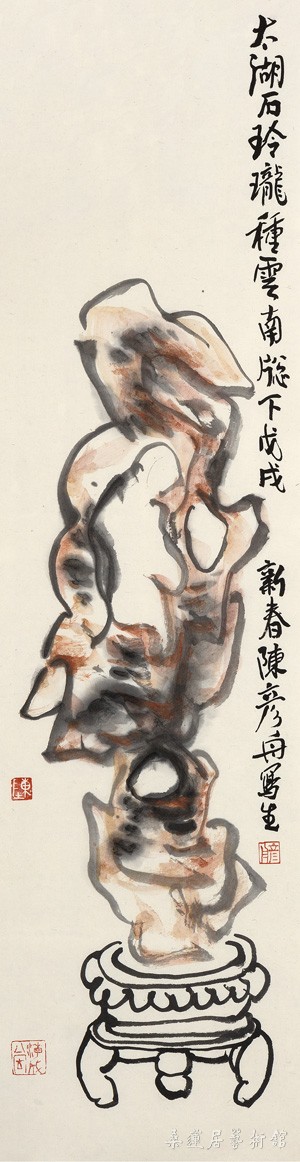 太湖石玲瓏種雲南牕下戊戌
新春陳彥舟寫生
桑蓮居藝術館